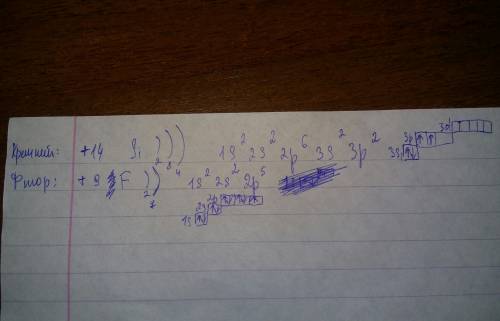 Кремний: +14 Si ))) 2 8 4 1s² 2s² 2p⁶ 3s² 3p² 3s ↑↓ 3p ↑ ↑ 3d
Фтор: +9 F )) 2 7 1s² 2s² 2p⁵
1s ↑↓ 2s ↑↓ 2p ↑↓ ↑↓ ↑